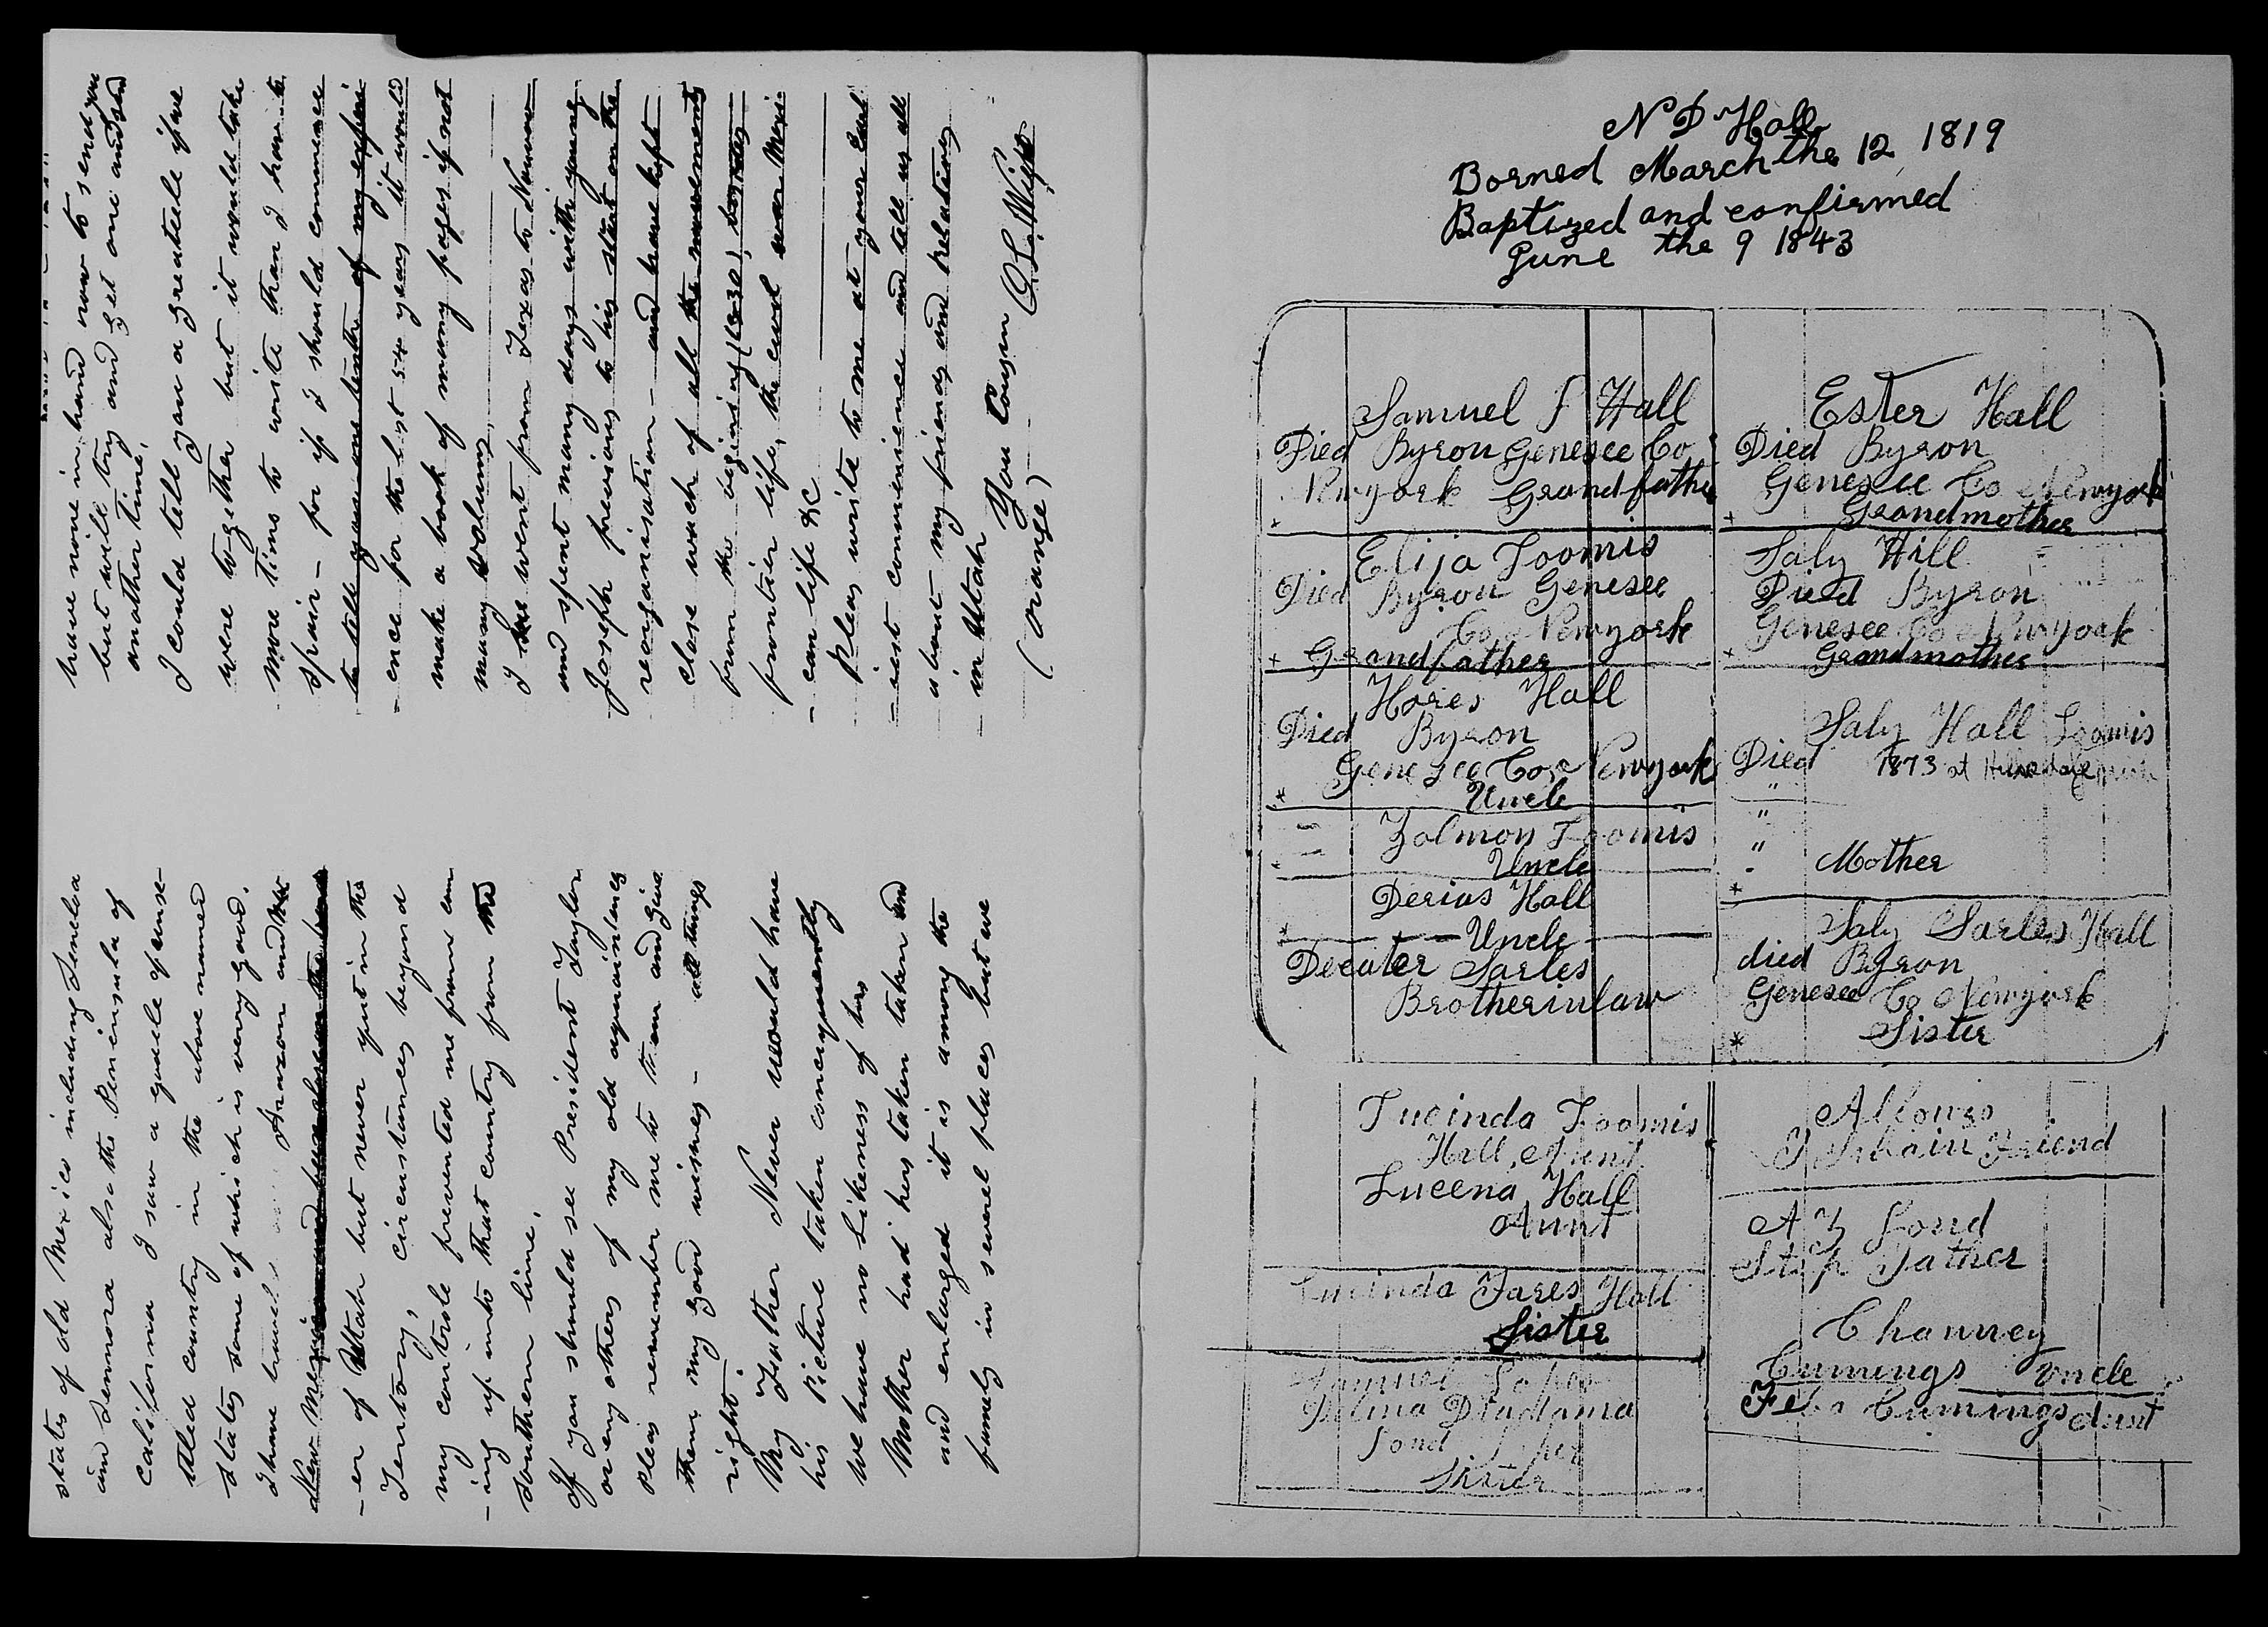 states of old Mexico including Seneloa
and Sennora also the Peninsula of
California I saw a goodele of unse-
tled country in the above named
states some of which is very good.
I have travel Arazon and
New Mexico
-er of Utah but never yut in the
Teritory, circustances beyond
my controle prevented me from com
-ing up into that country from the
Southern line.
If you should see President Taylor
or eny others of my old aquaintences
Pleas remember me to them and give
them my good wishes - all things
right.
My Father Never would have
his Picture taken concequently
we have no Likeness of his
Mother had hers taken taken and
and enlarged it is among the
famely in severel places but we
have none in hand now to send you
but will try and get one and send
another time,
I could tell you a greateele if we
were together but it would take
more time to write than I have to
spair - for if I should commence
to tell you one tenth of my experi
-ence for the last 54 years it would
make a book of many pages if not
many volums,
I went from Texas to Nauvoo
and spent many days with young
Joseph previous to his start on the
reorganisation - and have kept
close watch of all the movements
from the begining (1830)
frontier life, the civil war Mexi-
-can life &c
Pleas write to me at your Earl
-iest convenience and tell us all
about my friends and relatives
-in Utah You Cousin
(Orange) O. L. Wight
N D Hall
Borned March the 12 1819
Baptized and confirmed
June the 9 1843
Samuel F Hall
Died Byron Genesee Co
Newyork Grandfathe
Ester Hall
Died Byron
Genesee Co Newyork
Grandmother
Elija Loomis
Died Byron Genesee
Co Newyork
Grandfather
Saly Hill
Died Byron
Genesee Co Newyork
Grandmother
Hores Hall
Died Byron
Genesee Co Newyork
Uncle
Saly Hall Loomis
Died 1873 at
Mother
Zolmon Loomis
Uncle
Derius Hall
Uncle
Decater Sarles
Brotherinlaw
Saly Sarles Hall
died Byron
Genesee Co Newyork
Sister
Lucinda Loomis
Hall Aunt
Lucena Hall
Aunt
Friend
A Z Lond
Step Father
Lucinda Fares Hall
Sister
Chauney
Cumings Uncle
Cumings Aunt
Samuel
Sister